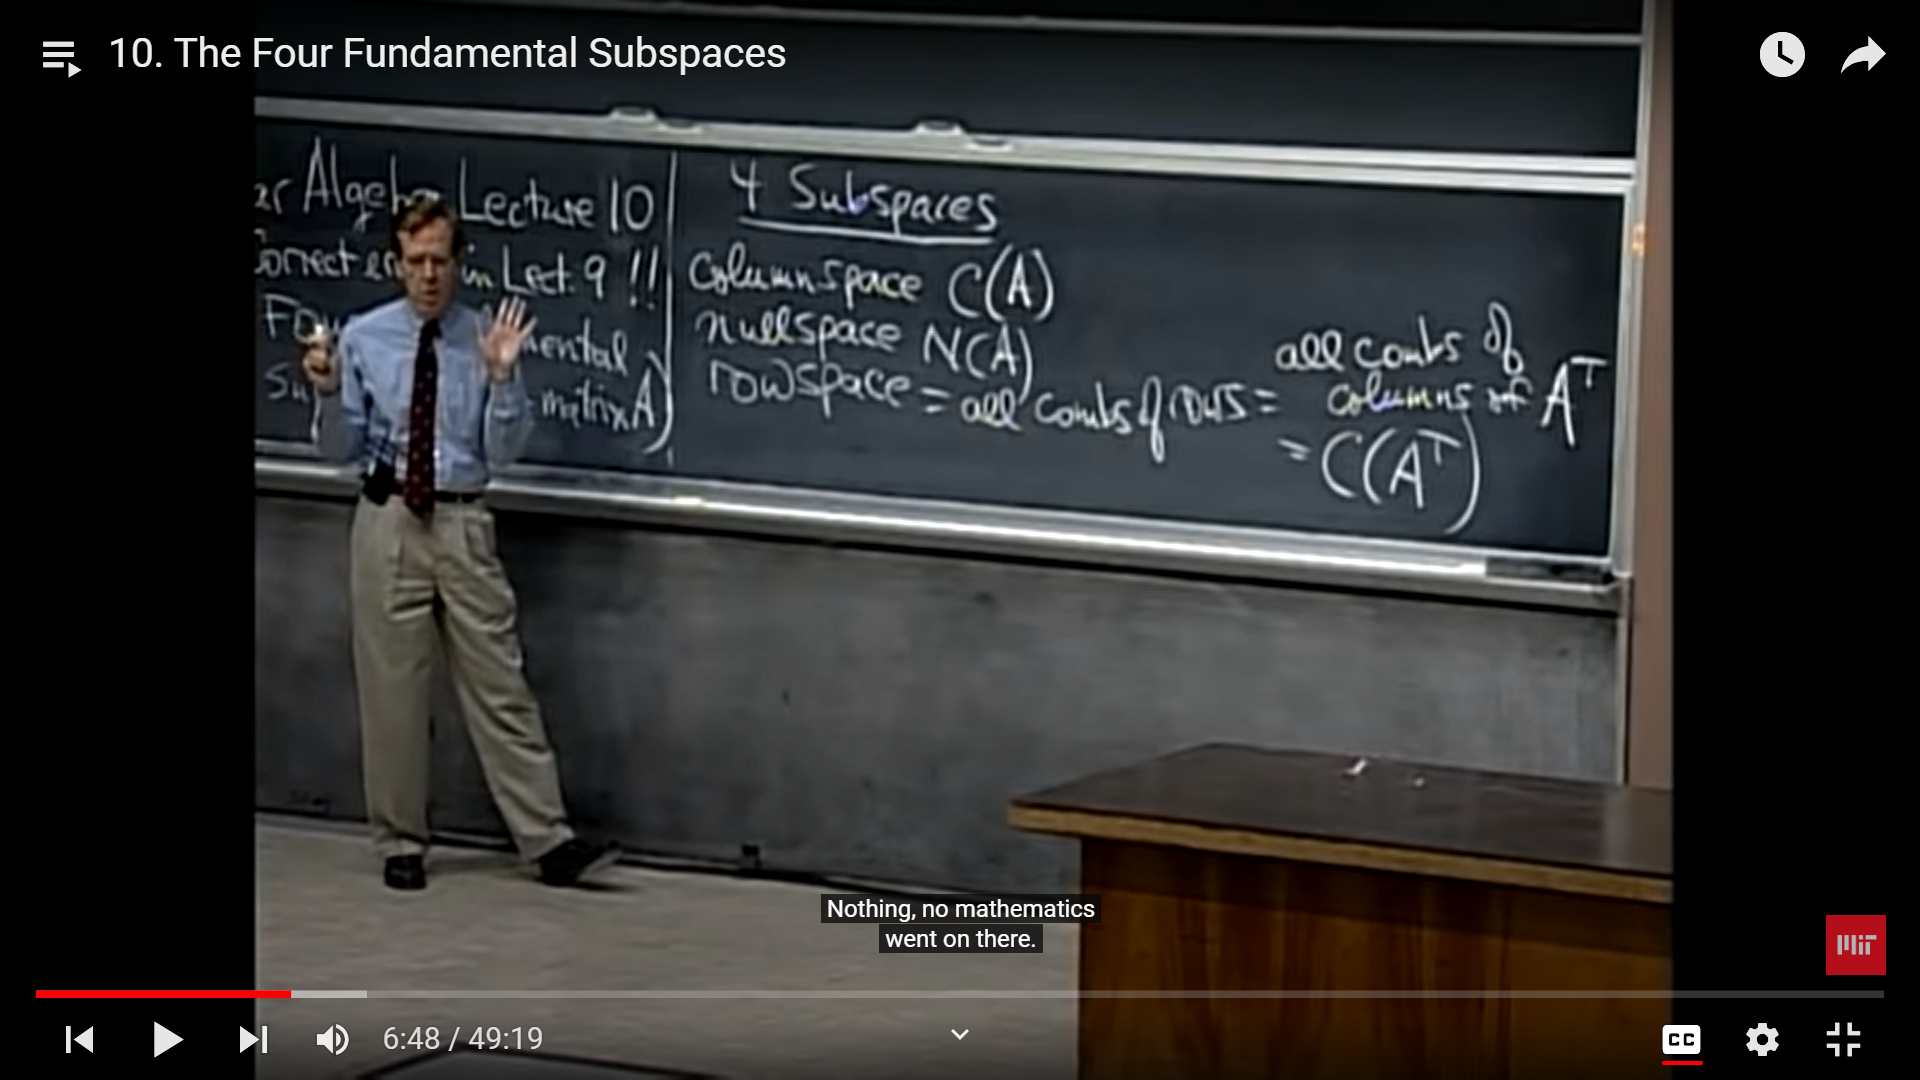 10. The Four Fundamental Subspaces
Algebra Lecture 10
in Lect. 9 !!
matrix A)
4 Subspaces
Column space C(A)
nullspace N(A)
rowspace = all combs of rows = all combs of
columns of Aᵀ
= C(Aᵀ)
Nothing, no mathematics
went on there.
MIT
6:48 / 49:19
CC